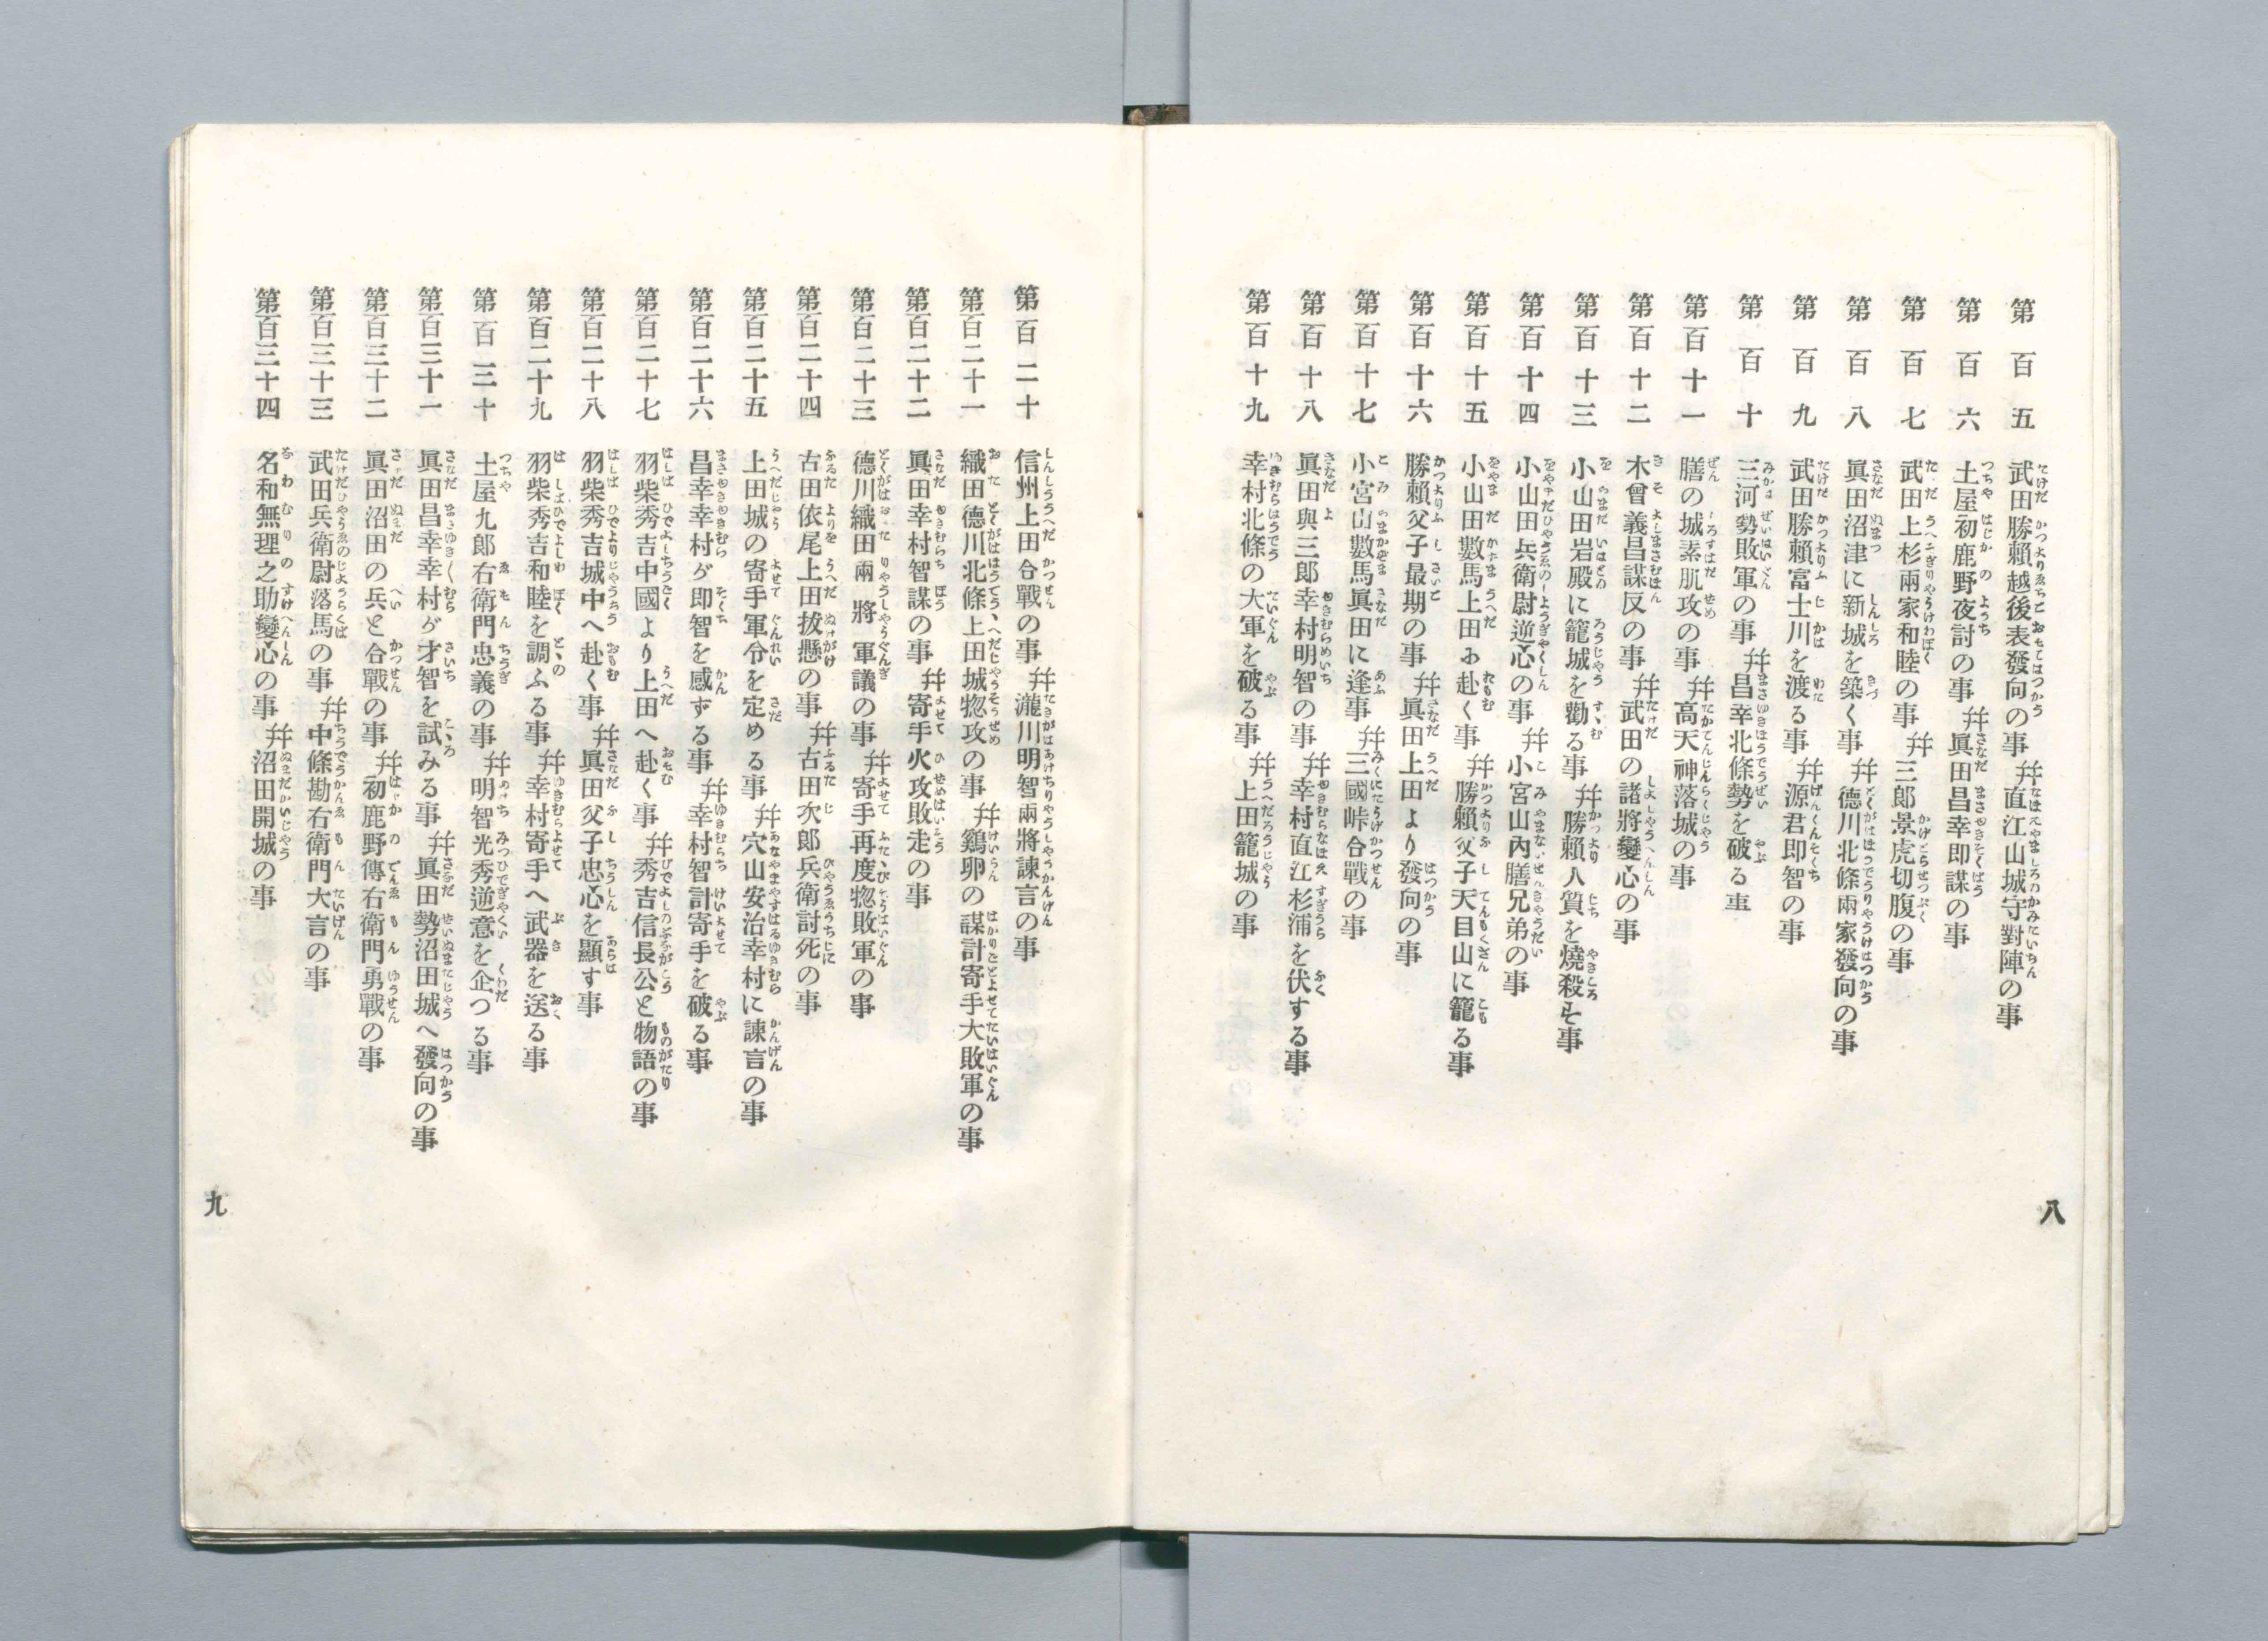 第百五 武田勝賴越後表發向の事 幷直江山城守對陣の事
第百六 土屋初鹿野夜討の事 幷眞田昌幸即謀の事
第百七 武田上杉兩家和睦の事 幷三郎景虎切腹の事
第百八 眞田沼津に新城を築く事 幷德川北條兩家發向の事
第百九 武田勝賴富士川を渡る事 幷源君即智の事
第百十 三河勢敗軍の事 幷昌幸北條勢を破る事
第百十一 膳の城素肌攻の事 幷高天神落城の事
第百十二 木曾義昌謀反の事 幷武田の諸將變心の事
第百十三 小山田岩殿に籠城を勸る事 幷勝賴人質を燒殺す事
第百十四 小山田兵衛尉逆心の事 幷小宮山內膳兄弟の事
第百十五 小山田數馬上田へ赴く事 幷勝賴父子天目山に籠る事
第百十六 勝賴父子最期の事 幷眞田上田より發向の事
第百十七 小宮山數馬眞田に逢事 幷三國峠合戰の事
第百十八 眞田與三郎幸村明智の事 幷幸村直江杉浦を伏する事
第百十九 幸村北條の大軍を破る事 幷上田籠城の事
八
第百二十 信州上田合戰の事 幷瀧川明智兩將諫言の事
第百二十一 織田德川北條上田城惣攻の事 幷鷄卵の謀計寄手大敗軍の事
第百二十二 眞田幸村智謀の事 幷寄手火攻敗走の事
第百二十三 德川織田兩將軍議の事 幷寄手再度惣敗軍の事
第百二十四 古田依尾上田拔懸の事 幷古田次郎兵衛討死の事
第百二十五 上田城の寄手軍令を定める事 幷穴山安治幸村に諫言の事
第百二十六 昌幸幸村が即智を感ずる事 幷幸村智計寄手を破る事
第百二十七 羽柴秀吉中國より上田へ赴く事 幷秀吉信長公と物語の事
第百二十八 羽柴秀吉城中へ赴く事 幷眞田父子忠心を顯す事
第百二十九 羽柴秀吉和睦を調ふる事 幷幸村寄手へ武器を送る事
第百三十 土屋九郎右衛門忠義の事 幷明智光秀逆意を企つる事
第百三十一 眞田昌幸幸村が才智を試みる事 幷眞田勢沼田城へ發向の事
第百三十二 眞田沼田の兵と合戰の事 幷初鹿野傳右衛門勇戰の事
第百三十三 武田兵衛尉落馬の事 幷中條勘右衛門大言の事
第百三十四 名和無理之助變心の事 幷沼田開城の事
九